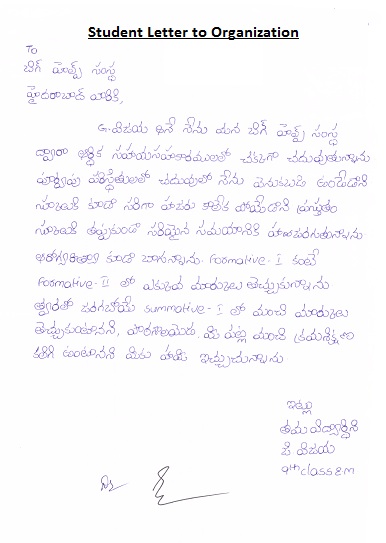 Student Letter to Organization
To
బిగ్ హెల్ప్ సంస్థ
హైదరాబాద్ వారికి,
G. విజయ అనే నేను మన బిగ్ హెల్ప్ సంస్థ
ద్వారా ఆర్థిక సహాయసహకారములలో చక్కగా చదువుతున్నాను
పూర్వపు పరిస్థితులలో చదువులో నేను వెనుకబడి ఉండేదాని
స్కూలుకి కూడా సరిగా హాజరు కాలేక పోయేదాని ప్రస్తుతం
స్కూలుకి తప్పకుండా సరియైన సమయానికి హాజరగుతున్నాను
కూడా బాగున్నాను. Formative-I కంటే
Formative-II లో ఎక్కువ మార్కులు తెచ్చుకున్నాను
త్వరలో జరగబోయే summative-I లో మంచి మార్కులు
తెచ్చుకుంటానని, మీ పట్ల మంచి
కలిగి ఉంటానని మీకు హామీ ఇచ్చుచున్నాను
ఇట్లు
తమ విద్యార్థిని
జి విజయ
9th class EM